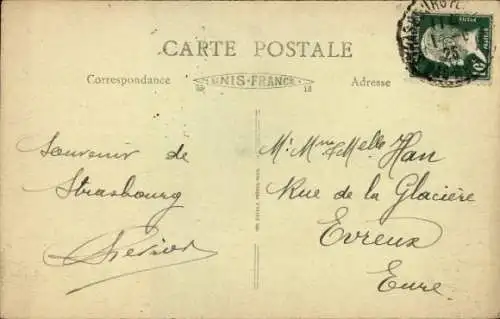 CARTE POSTALE
Correspondance
UNIS-FRANCE
Adresse
Souvenir de
Strasbourg
Mr Mme & Melle Han
Rue de la Glacière
Evreux
Eure